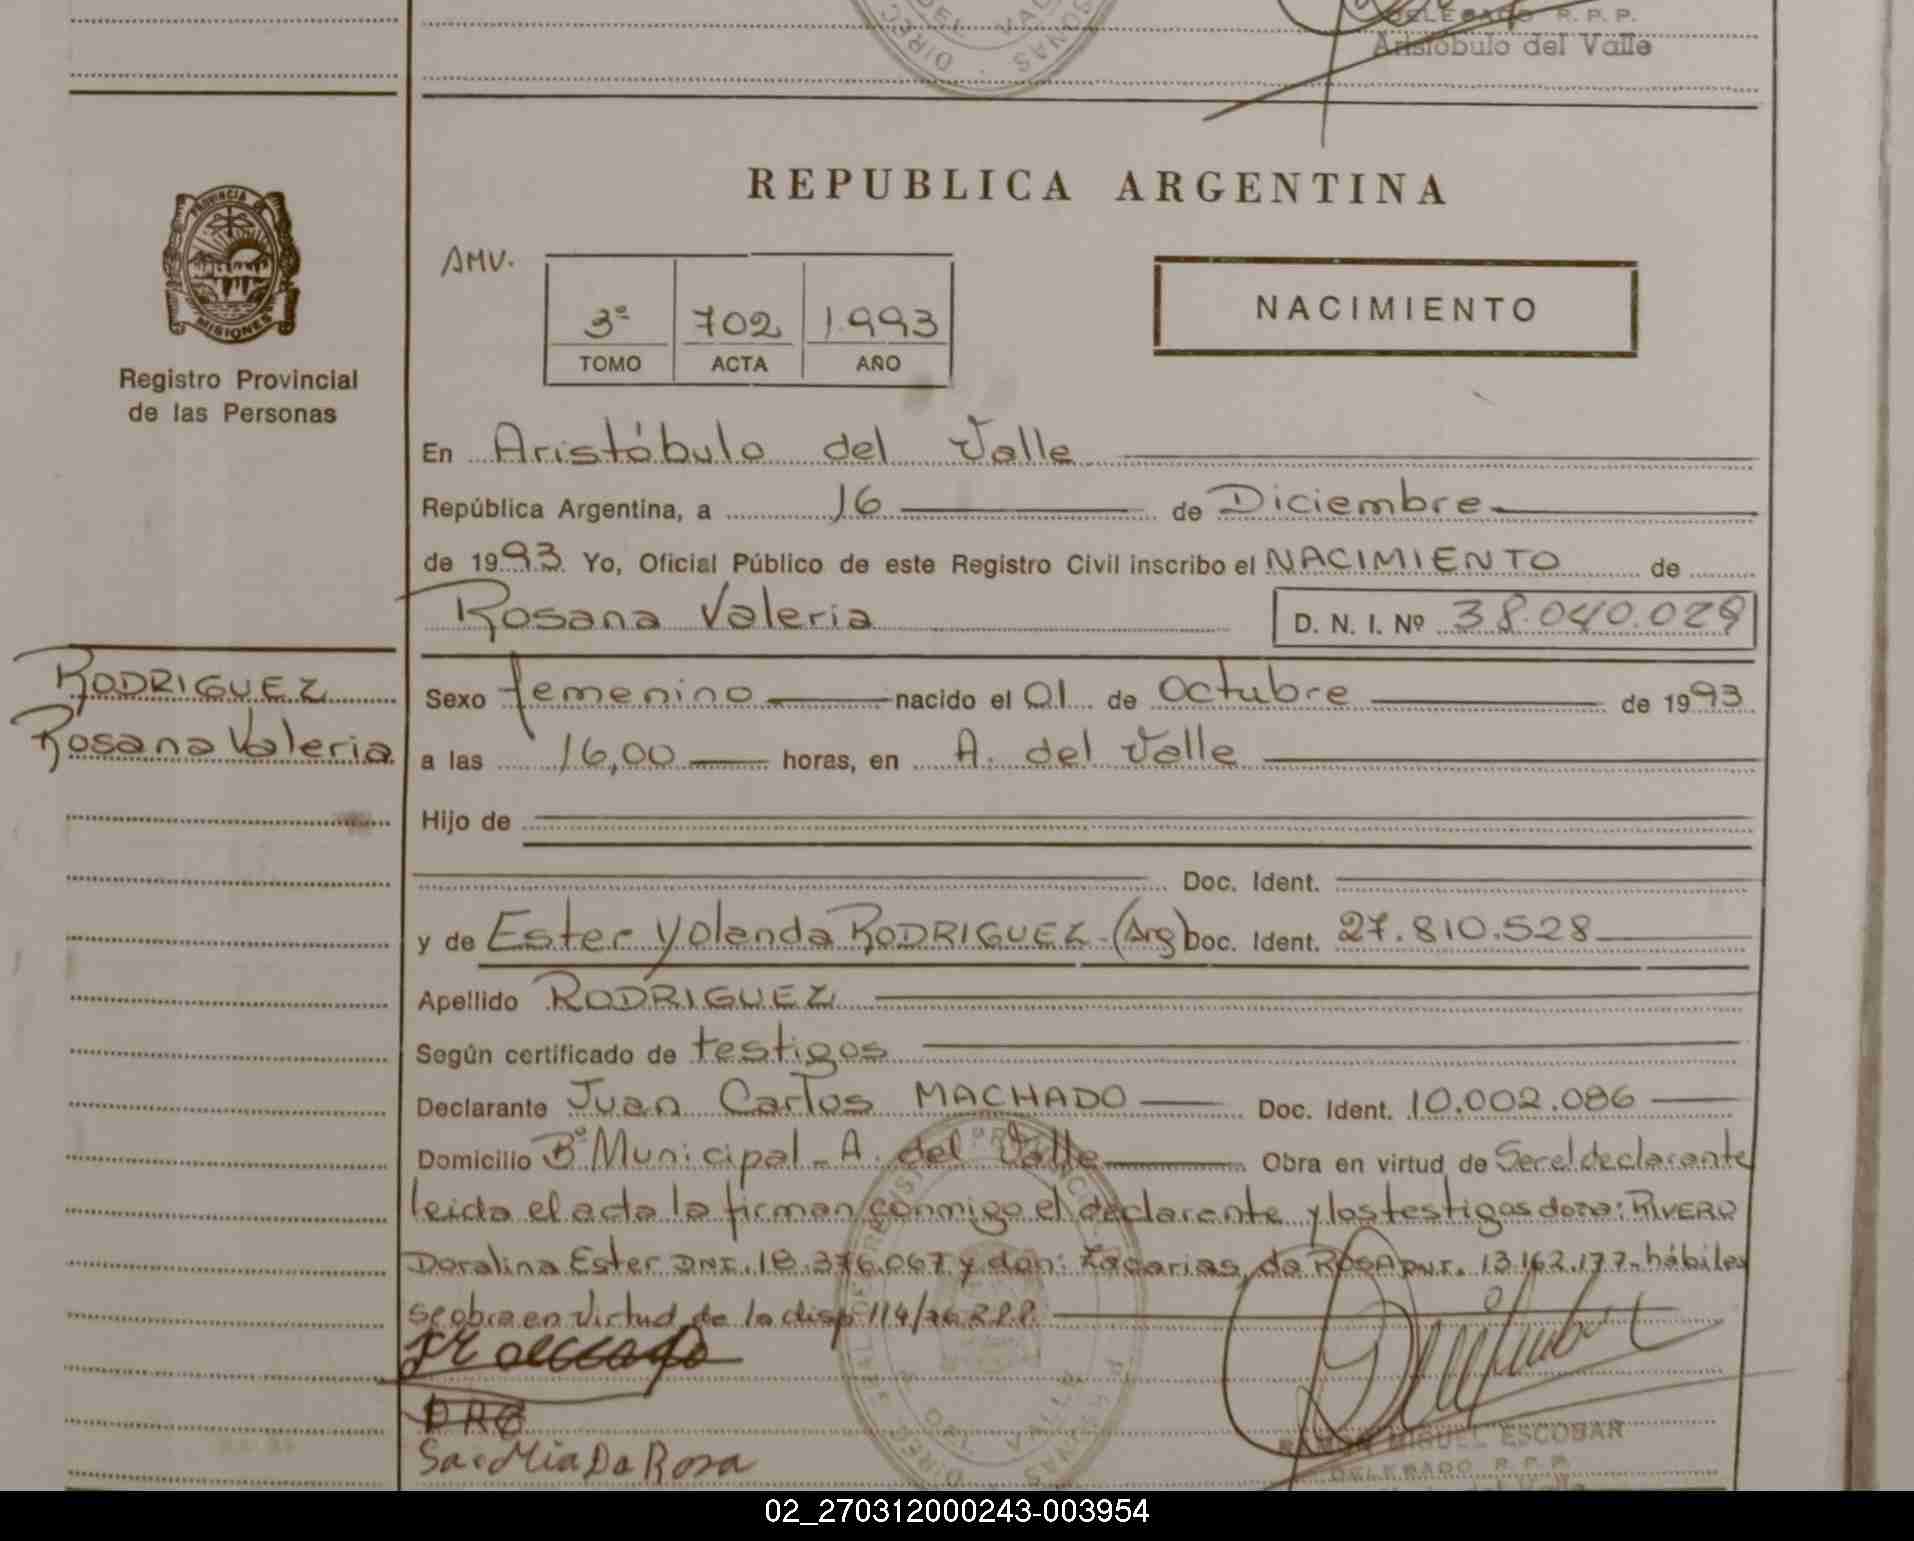 DELEGADO R. P. P.
Aristóbulo del Valle
REPUBLICA ARGENTINA
PROVINCIA DE
MISIONES
Registro Provincial
de las Personas
AMV.
3º 702 1.993
TOMO ACTA AÑO
NACIMIENTO
En Aristóbulo del Valle
República Argentina, a 16 de Diciembre
de 1993. Yo, Oficial Público de este Registro Civil inscribo el NACIMIENTO de
Rosana Valeria D. N. I. Nº 38.040.029
RODRIGUEZ
Rosana Valeria
Sexo femenino nacido el 01 de Octubre de 1993
a las 16,00 horas, en A. del Valle
Hijo de
Doc. Ident.
y de Ester Yolanda RODRIGUEZ - (Arg) Doc. Ident. 27.810.528
Apellido RODRIGUEZ
Según certificado de testigos
Declarante Juan Carlos MACHADO Doc. Ident. 10.002.086
Domicilio Bº Municipal - A. del Valle Obra en virtud de Ser el declarante
leida el acta la firman conmigo el declarante y los testigos doña: RIVERO
Doralina Ester DNI. 18.376.067 y don: Zacarias da ROSA DNI. 13.162.177- hábiles
se obra en virtud de la disp 114/76 R.P.P.
DRE
Da Rosa
RAMON MIGUEL ESCOBAR
DELEGADO R. P. P.
02_270312000243-003954